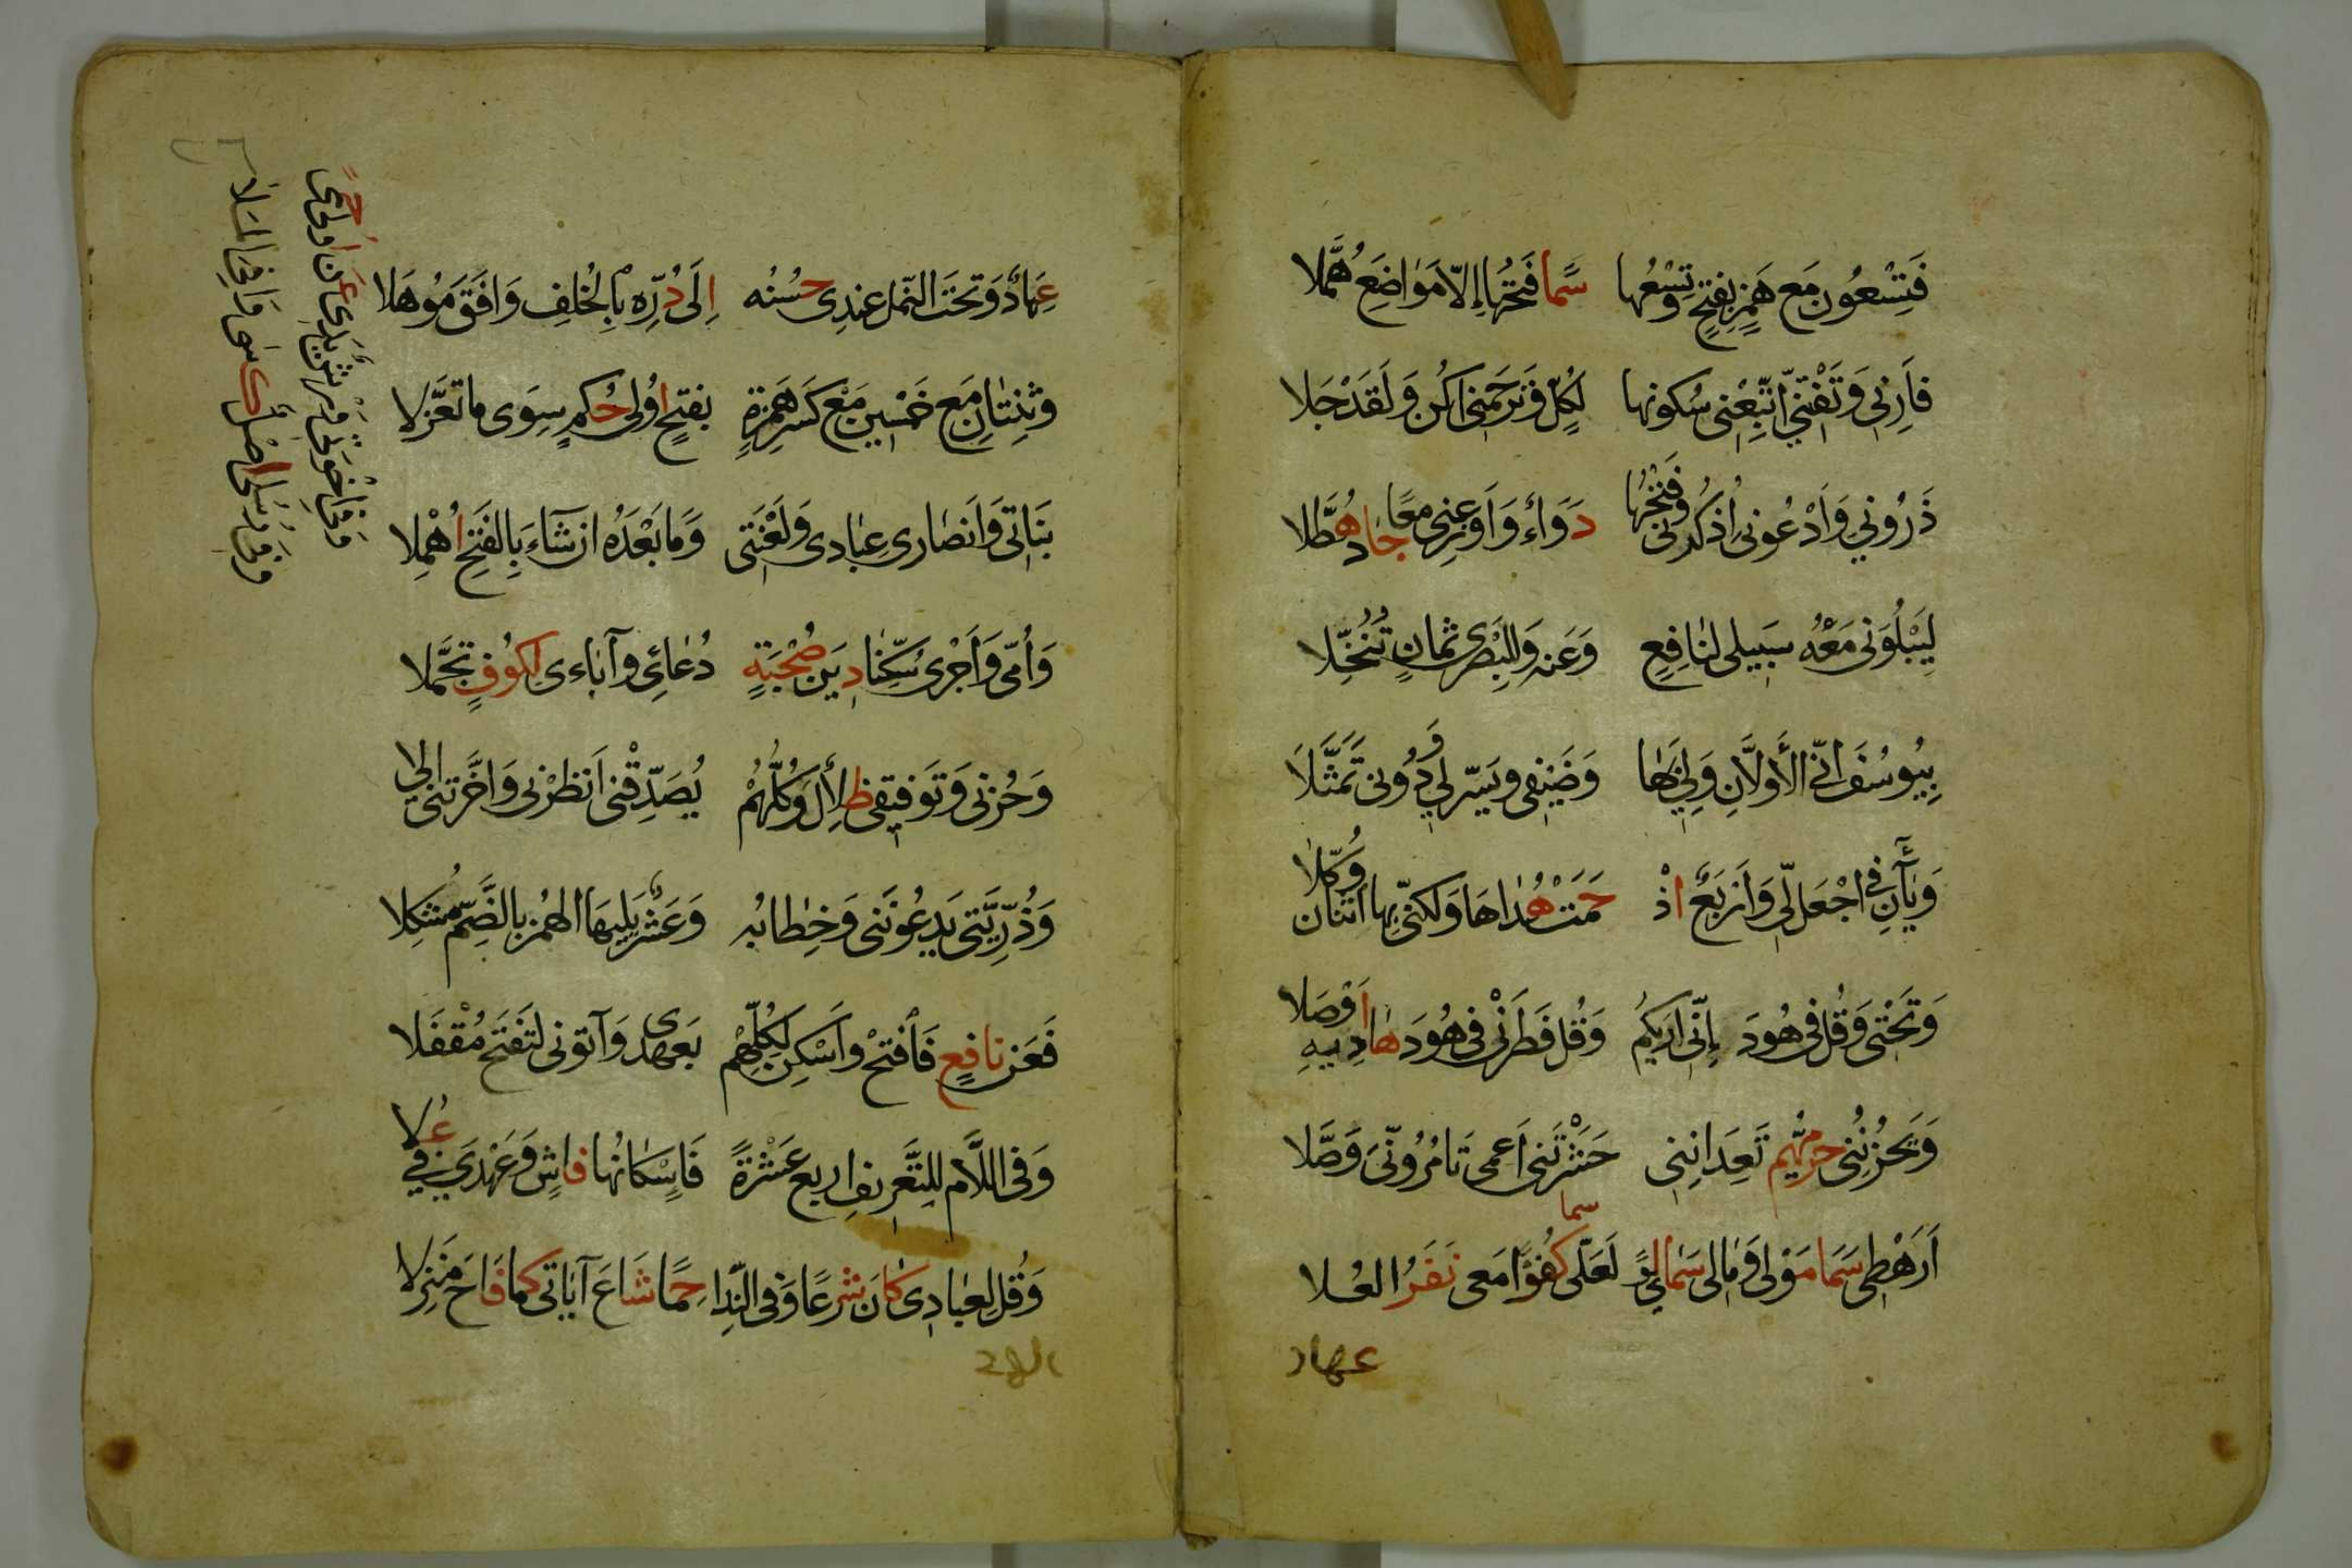 فَتِسْعُونَ مَع هَمْزٍ بِفَتْحٍ وَتِسْعُهَا سَمَا فَتْحُهَا إِلَّا مَوَاضِعَ هُمَّلا
فَأَرْنِي وَتَفْتِنِّي اتَّبِعْنِي سُكُونهَا لِكُلٍّ وَتَرْحَمْنِي أَكُن وَلَقَدْ جَلا
ذَرُونِي وَادْعُونِي اذْكُرُونِي فَتْحُهَا دَوَاءٌ وَأَوْزِعْنِي مَعًا جَادَ هُطَّلا
لِيَبْلُوَنِي مَعْهُ سَبِيلِي لِنَافِعٍ وَعَنْهُ وَلِلْبَصْرِي ثَمَانٍ تُنُخِّلا
بِيُوسُفَ إِنِّي الأَوَّلَانِ وَلِي بِهَا وَضَيْفِي وَيَسِّرْ لِي وَدُونِي تَمَثَّلَا
وَيَاءَانِ فِي اجْعَلْ لِي وَأَرْبَعٌ اذْ حَمَتْ هُدَاهَا وَلَكِنِّي بِهَا اثْنَانِ وُكِّلا
وَتَحْتِي وَقُلْ فِي هُودَ إِنِّي أَرَيكُمُ وَقُلْ فَطَرَنْ فِي هُودَ هَادِيهِ أَوْصَلا
وَيَحْزُنُنِي حِرْمِيُّهُم تَعِدَانِنِي حَشَرْتَنِي أَعْمَى تَأْمُرُونِّيَ وَصَّلا
أَرَهْطِي سَمَا مَوْلًى وَمَالِي سَمَا لِوًى لَعَلِّي سما كُفُؤًا مَعِي نَفَرُ العُلا
عماد
عِمَادٌ وَتَحْتَ النَّمْلِ عِنْدِي حُسْنُه إِلَى دُرِّهِ بِالْخُلْفِ وَافَقَ مُوهَلا
وَثِنْتَانِ مَع خَمْسِينَ مَعْ كَسْرِ هَمْزَةٍ بِفَتْحٍ أُولِي حُكْمٍ سِوَى مَا تَعَزَّلا
بَنَاتِي وَأَنْصَارِي عِبَادِي وَلَعْنَتِي وَمَا بَعْدَهُ إِنْ شَاءَ بِالْفَتْحِ أُهْمِلا
وَأُمِّي وَأَجْرِي سُكِّنَا دِينَ صُحْبَةٍ دُعَائِي وَآبَاءِي لِكُوفٍ تَجَمَّلا
وَحُزْنِي وَتَوْفِيقِي ظِلَالٌ وَكُلُّهُمْ يُصَدِّقْنِي أَنْظِرْنِي وَأَخَّرْتَنِي إِلَى
وَذُرِّيَّتِي يَدْعُونَنِي وَخِطَابُهُ وَعَشْرٌ يَلِيهَا الْهَمْزُ بِالضَّمِّ مُشْكِلا
فَعَنْ نَافِعٍ فَافْتَحْ وَأَسْكِنْ لِكُلِّهِمْ بِعَهْدِي وَآتُونِي لِتَفْتَحَ مُقْفَلا
وَفِي اللَّامِ لِلتَّعْرِيفِ أَرْبَعُ عَشْرَةً فَإِسْكَانُهَا فَاشٍ وَعَهْدِي فِي عُلا
وَقُلْ لِعِبَادِي كَانَ شَرْعًا وَفِي النِّدَا حِمًا شَاعَ آيَاتِي كَمَا فَاحَ مَنْزِلا